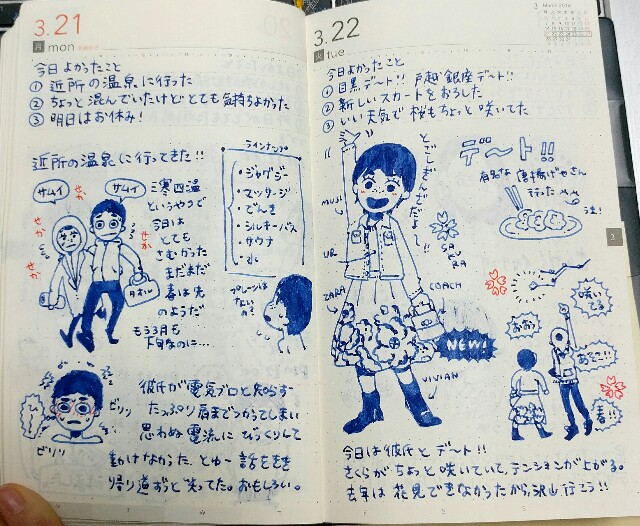 3.21
月 mon
今日よかったこと
① 近所の温泉に行った
② ちょっと混んでいたけどとても気持ちよかった
③ 明日はお休み!
近所の温泉に行ってきた!!
サムイ
サムイ
せか
せか
せか
タオル
三寒四温
というやつで
今日は
とても
さむかった
まだまだ
春は先
のようだ
もう3月も
下旬なのに…
ラインナップ
・ジャグジー
・マッサージ
・でんき
・シルキーバス
・サウナ
・水
プレーンは
ないの?
ビリリ
ビリリ
彼氏が電気ブロと知らず
たっぷり肩までつかってしまい
思わぬ電流にびっくりして
動けなかった、とゆー話をきき
帰り道ずっと笑ってた。おもしろい。
3.22
火 tue
3 March 2016
今日よかったこと
① 目黒デート!! 戸越銀座デート!!
② 新しいスカートをおろした
③ いい天気で桜もちょっと咲いてた
とごしぎんざだよ〜!!
デート!!
有名な唐揚げやさん
行った
うま!
MUJI
UR
ZARA
SA
KU
RA
COACH
NEW!
VIVIAN
咲い
てる
おお!
あそこ!!
春!!
3
今日は彼氏とデート!!
さくらがちょっと咲いていて、テンションが上がる。
去年は花見できなかったから沢山行こう!!